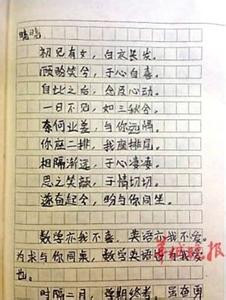 晓晓:
初见有女，白衣长发。
顾盼笑兮，于心自喜。
自此之后，念及心动。
一日不见，如三秋兮。
奈何业差，与你远隔。
你座二排，我座排尾。
相隔渐远，于心凄凄。
思之笑靥，于情切切。
遂奋起兮，盼与你同坐。
数学亦我不喜，英语亦我不爱。
为求与你同桌，数学英语
也。
时隔二月，学期终考。虽奋勇
晚报